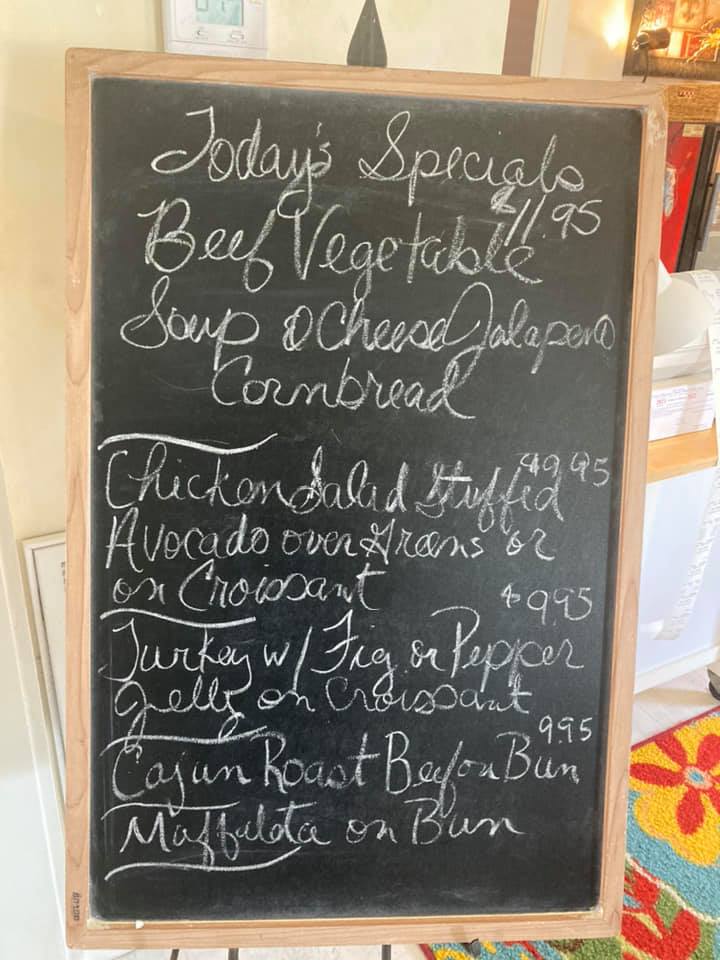 Today's Specials
$11.95
Beef Vegetable
Soup & Cheese Jalapeno
Cornbread
$9.95
Chicken Salad Stuffed
Avocado over Greens or
on Croissant
$9.95
Turkey w/ Fig or Pepper
Jelly on Croissant
9.95
Cajun Roast Beef on Bun
Maffalota on Bun